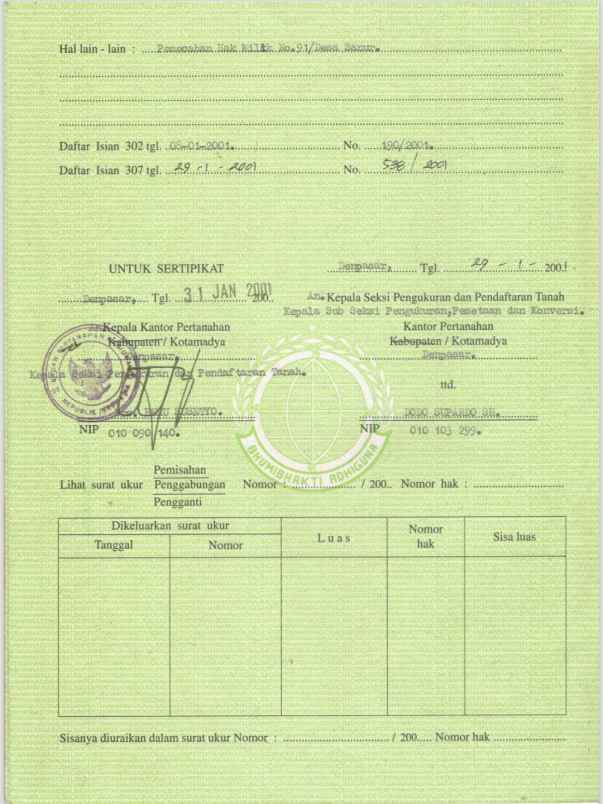 Hal lain - lain : Pemecahan Hak Milik No.91/Desa Sanur.
Daftar Isian 302 tgl. 08-01-2001. No. 190/2001.
Daftar Isian 307 tgl. 29 - 1 - 2001 No. 538 / 2001
Denpasar, Tgl. 29 - 1 - 2001
UNTUK SERTIPIKAT
Denpasar, Tgl. 31 JAN 2001 200..
An. Kepala Seksi Pengukuran dan Pendaftaran Tanah
Kepala Sub Seksi Pengukuran,Pemetaan dan Konversi.
An. Kepala Kantor Pertanahan
Kantor Pertanahan
Kabupaten / Kotamadya
Kabupaten / Kotamadya
Denpasar.
Denpasar.
Kepala Seksi Pengukuran dan Pendaftaran Tanah.
ttd.
DODO SUPARDO SH.
NIP 010 090 140.
NIP 010 103 299.
BHUMIBHAKTI ADHIGUNA
REPUBLIK INDONESIA
Pemisahan
Lihat surat ukur Penggabungan Nomor : / 200.. Nomor hak :
Pengganti
Dikeluarkan surat ukur
Tanggal
Nomor
Luas
Nomor
hak
Sisa luas
Sisanya diuraikan dalam surat ukur Nomor : / 200..... Nomor hak